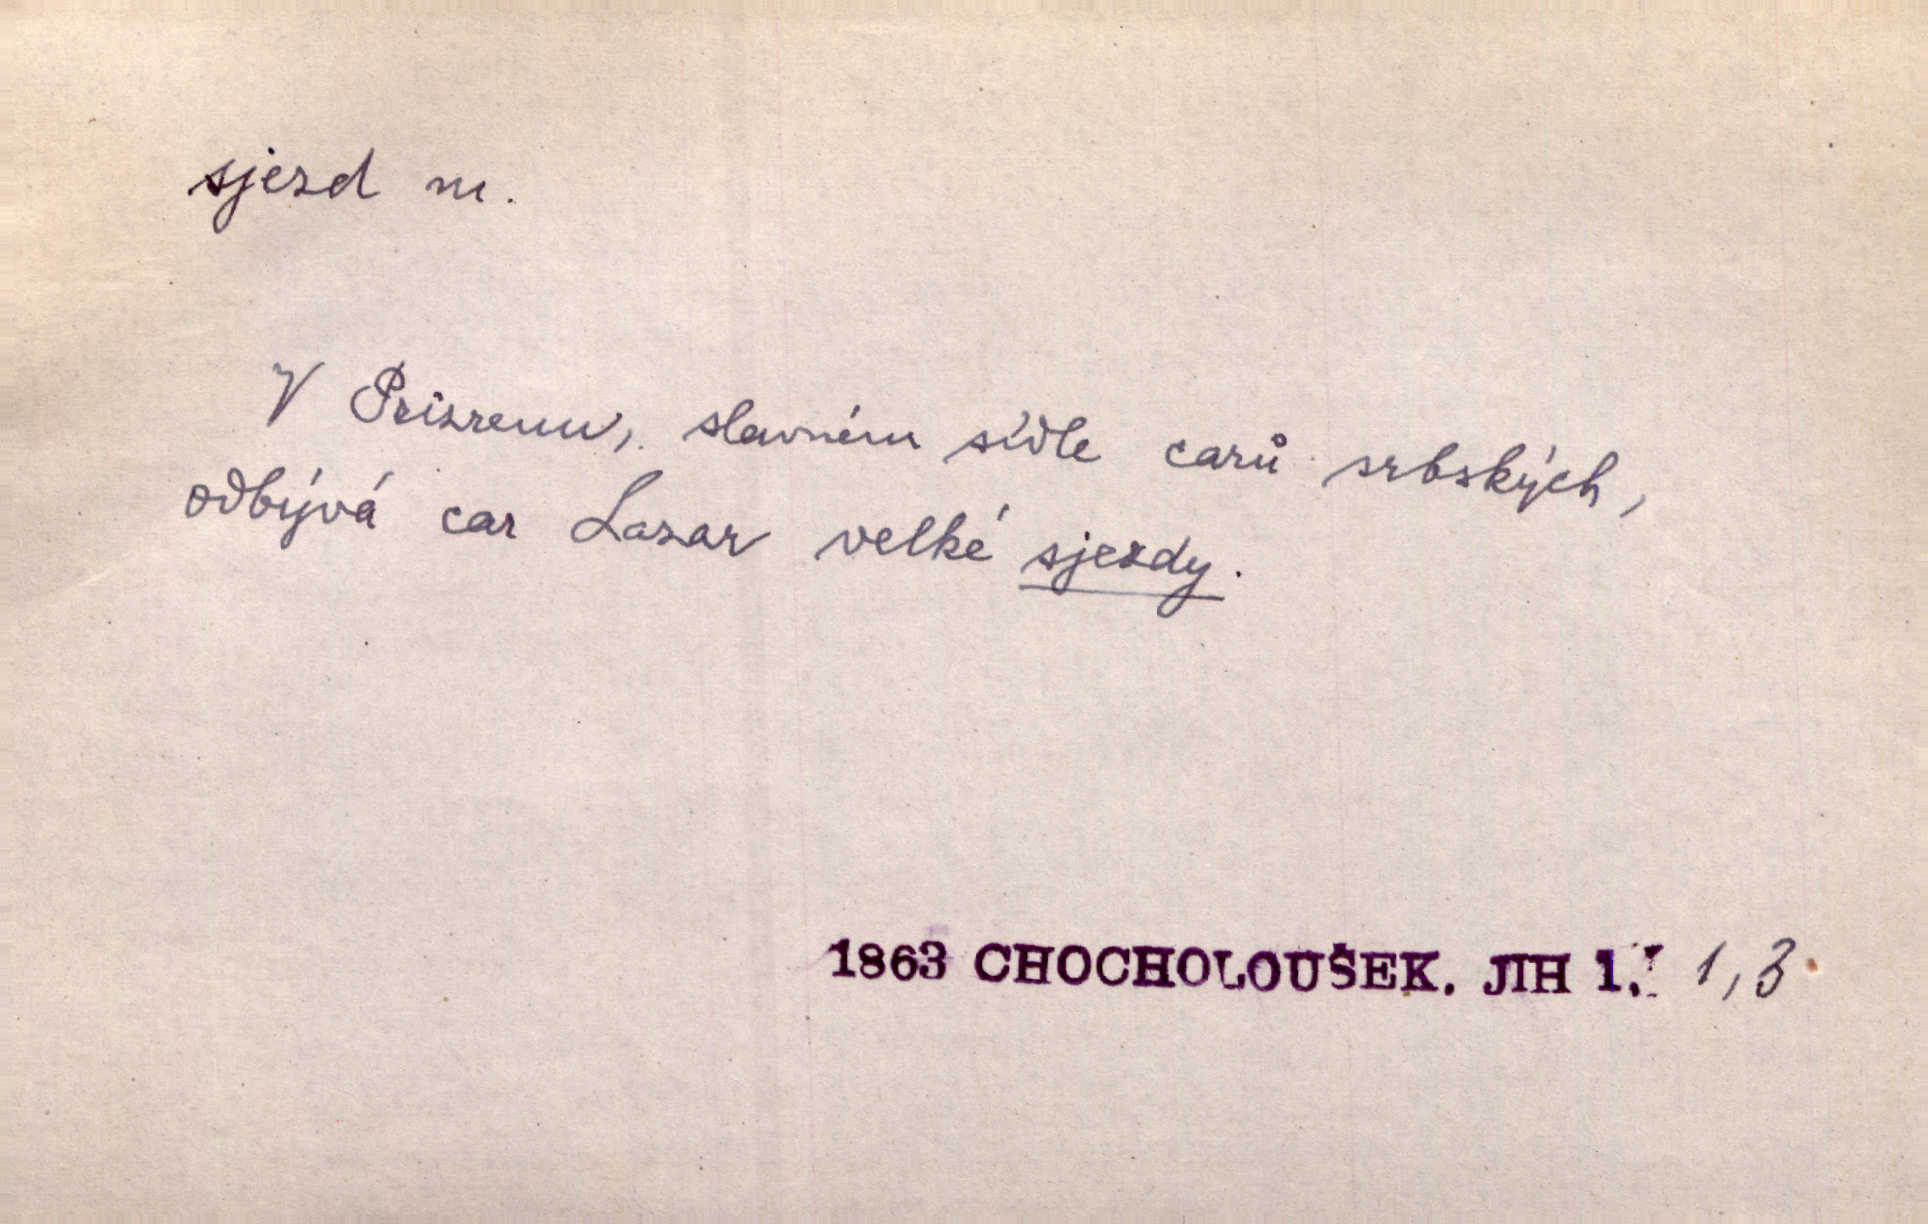 sjezd m.
V Prizrenu, slavném sídle carů srbských,
odbývá car Lazar velké sjezdy.
1863 CHOCHOLOUŠEK. JIH 1. 1,3